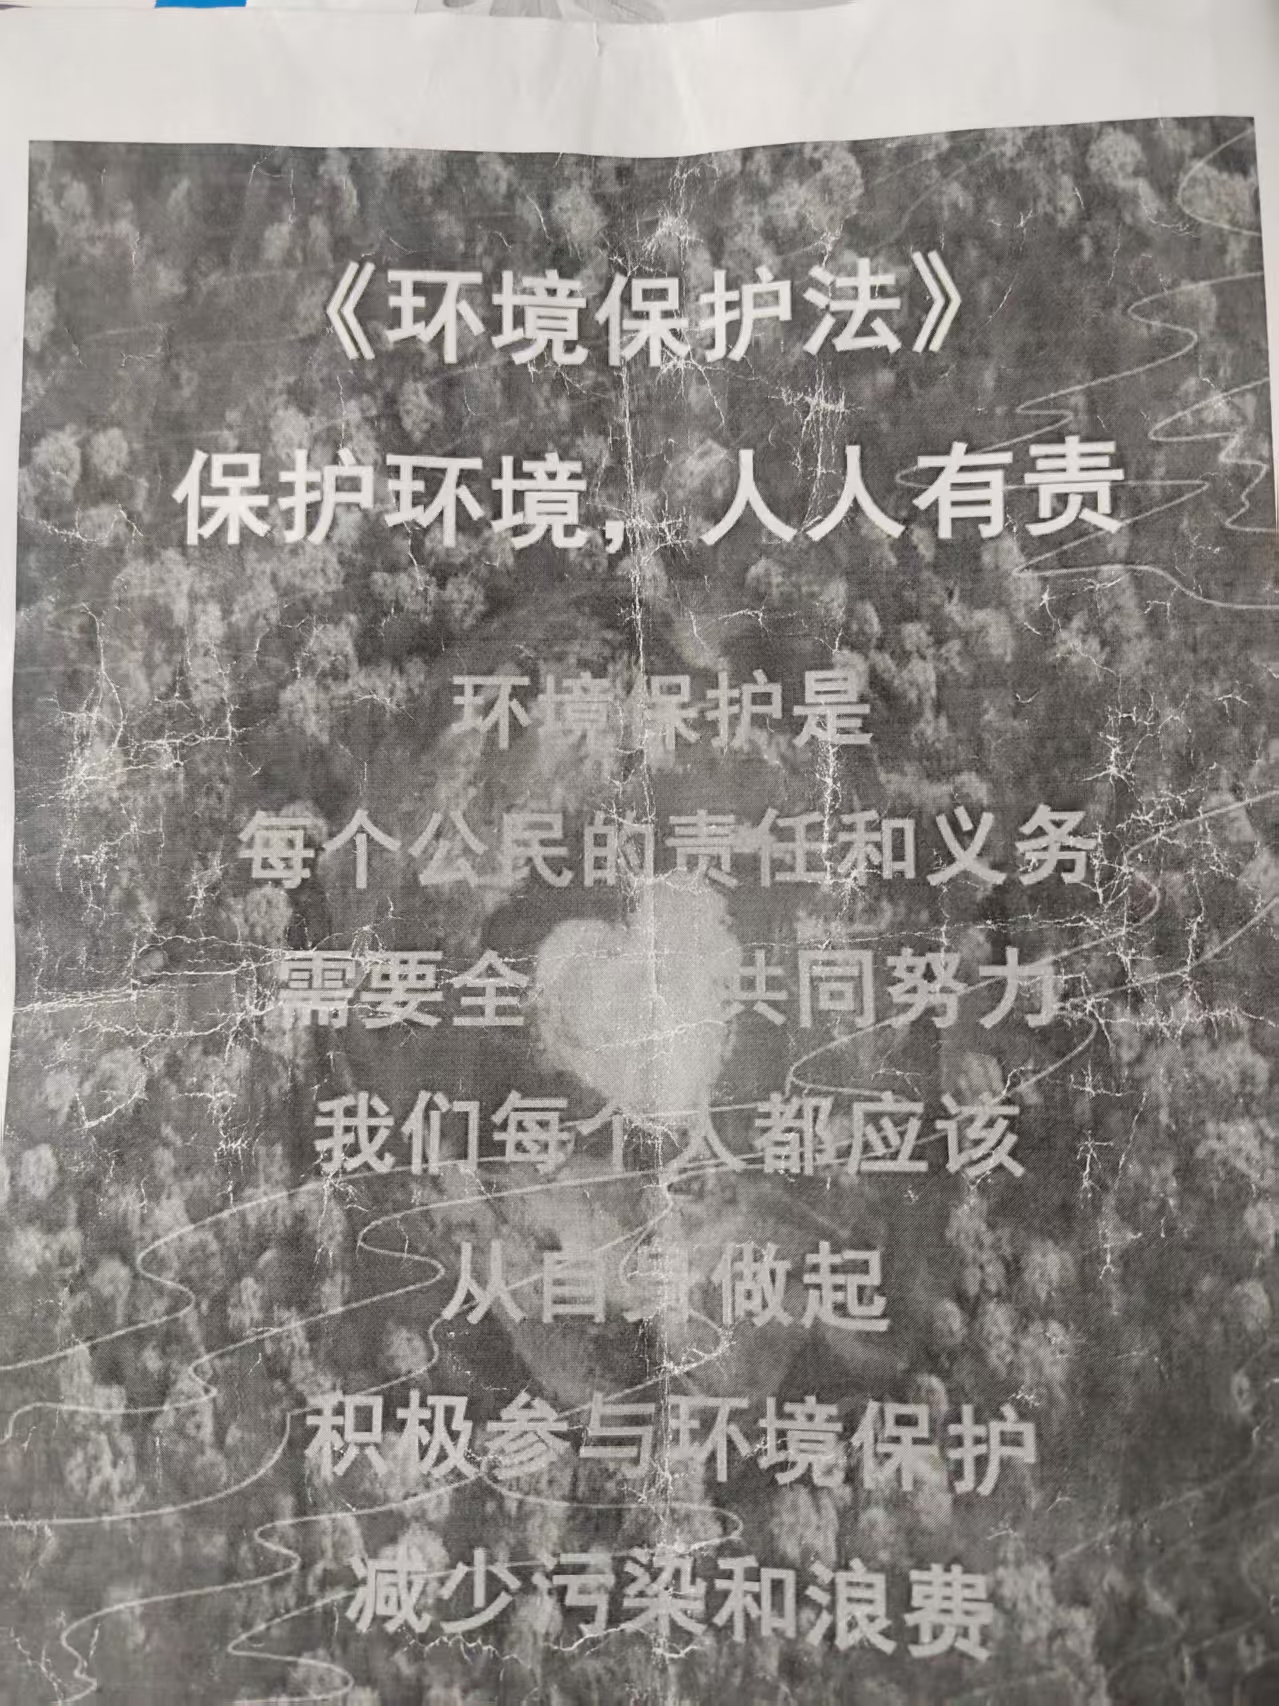 《环境保护法》
保护环境，人人有责
环境保护是
每个公民的责任和义务
需要全 共同努力
我们每个人都应该
从自身做起
积极参与环境保护
减少污染和浪费